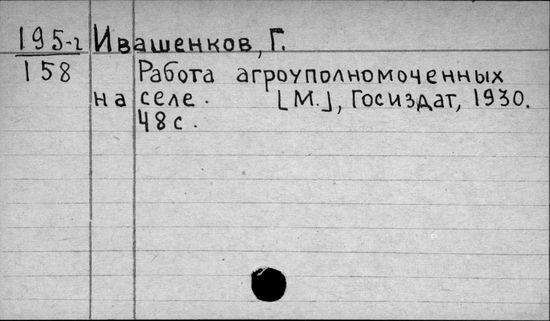 195-г Ивашенков, Г.
158 Работа агроуполномоченных
на селе. [М.], Госиздат, 1930.
48 с.